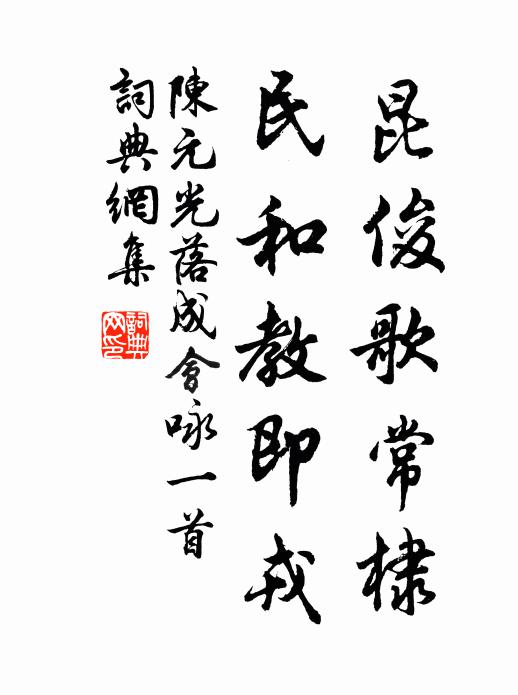 昆俊歌常棣
民和教即戎
陳元光落成會咏一首
詞典網集
詞典網印